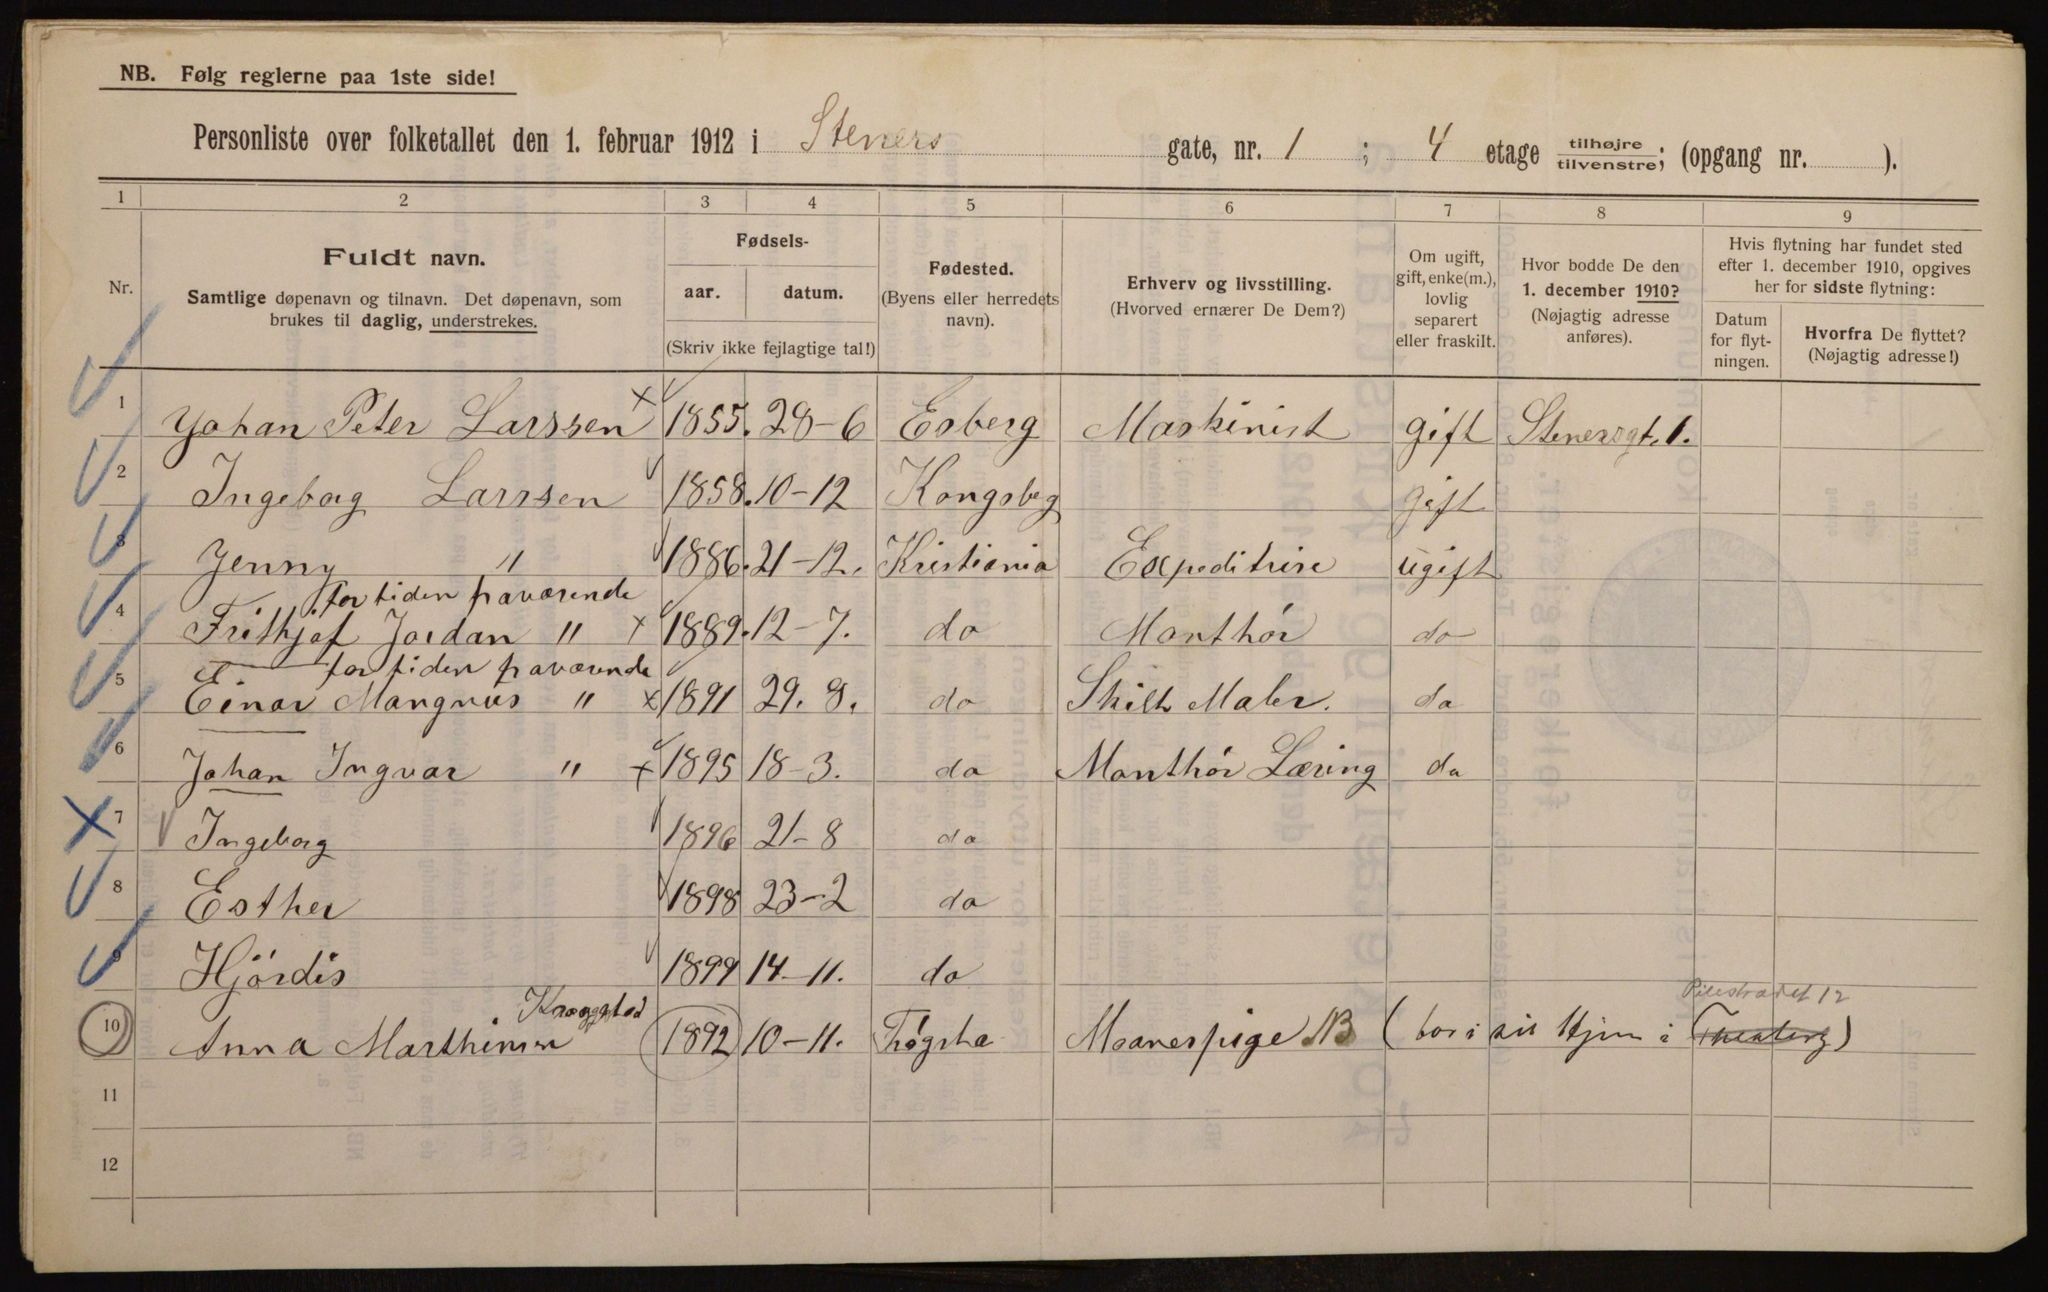 NB. Følg reglerne paa 1ste side!
Personliste over folketallet den 1. februar 1912 i Steners gate, nr. 1 ; 4 etage tilhøjre/tilvenstre; (opgang nr. ).
1 2 3 4 5 6 7 8 9
Nr.
Fuldt navn.
Samtlige døpenavn og tilnavn. Det døpenavn, som
brukes til daglig, understrekes.
Fødsels-
aar. datum.
(Skriv ikke fejlagtige tal!)
Fødested.
(Byens eller herredets
navn).
Erhverv og livsstilling.
(Hvorved ernærer De Dem?)
Om ugift,
gift, enke(m.),
lovlig
separert
eller fraskilt.
Hvor bodde De den
1. december 1910?
(Nøjagtig adresse
anføres).
Hvis flytning har fundet sted
efter 1. december 1910, opgives
her for sidste flytning:
Datum
for flyt-
ningen.
Hvorfra De flyttet?
(Nøjagtig adresse!)
1 Johan Peter Larssen × 1855. 28-6 Esberg Maskinist gift Stenersgt. 1.
2 Ingeborg Larssen 1858. 10-12 Kongsbeg gift
3 Jenny " 1886. 21-12. Kristiania Expeditrise ugift
for tiden fraværende
4 Frithjof Jordan " × 1889. 12-7. do Monthør do
for tiden fraværende
5 Einar Mangnus " × 1891 29. 8. do Skilt Maler. do
6 Johan Ingvar " × 1895 18-3. do Monthør Læring do
7 Ingeborg 1896 21-8 do
8 Esther 1898 23-2 do
9 Hjørdis 1899 14-11. do
Kroggstad Pilestrædet 12
10 Anna Marthinsen 1892 10-11. Maanespige NB (bor i sit Hjem i )
11
12